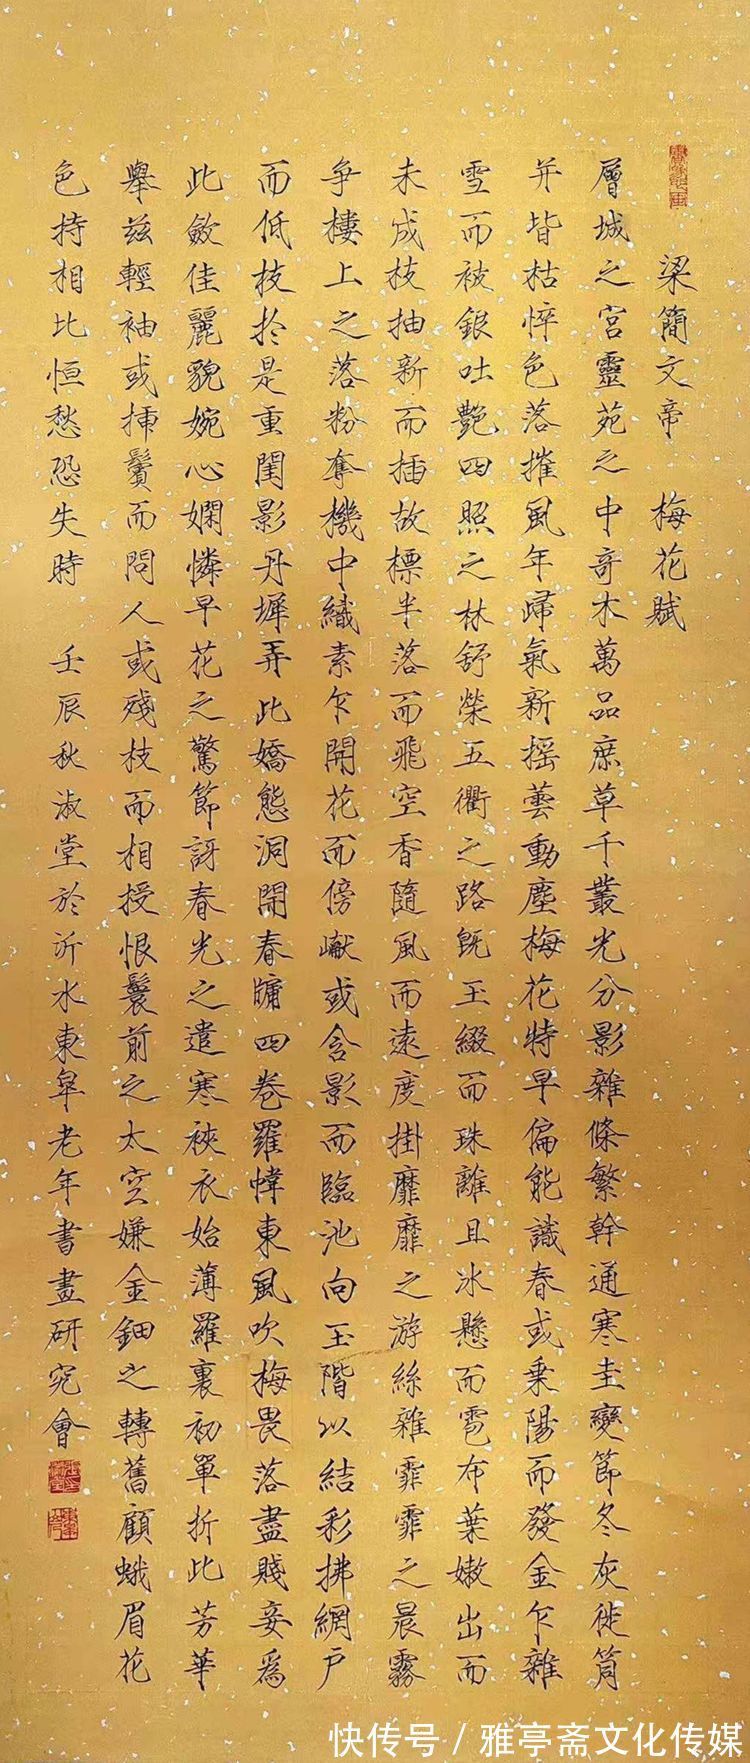 梁簡文帝 梅花賦
層城之宮靈苑之中奇木萬品庶草千叢光分影雜條繁幹通寒圭變節冬灰徙筩
并皆枯悴色落摧風年歸氣新摇蕓動塵梅花特早偏能識春或乗陽而發金乍雜
雪而被銀吐艷四照之林舒榮五衢之路既玉綴而珠離且冰懸而雹布葉嫩出而
未成枝抽新而插故標半落而飛空香隨風而遠度掛靡靡之游絲雜霏霏之晨霧
爭樓上之落粉奪機中織素乍開花而傍巘或含影而臨池向玉階以結彩拂網戶
而低枝於是重閨影丹墀弄此嬌態洞開春牖四卷羅幃東風吹梅畏落盡賤妾爲
此斂佳麗貌婉心嫻憐早花之驚節訝春光之遣寒裌衣始薄羅裏初單折此芳華
舉茲輕袖或插鬢而問人或殘枝而相授恨鬟前之太空嫌金鈿之轉舊顧蛾眉花
色持相比恒愁恐失時 壬辰秋淑堂於沂水東皐老年書畫研究會
快传号/雅亭斋文化传媒